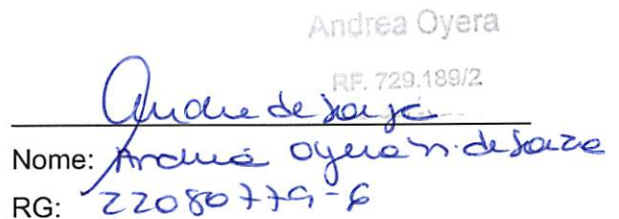 Andrea Oyera
RF. 729.189/2
Andrea de Souza
Nome: Andrea Oyera N. de Souza
RG: 22080779-6